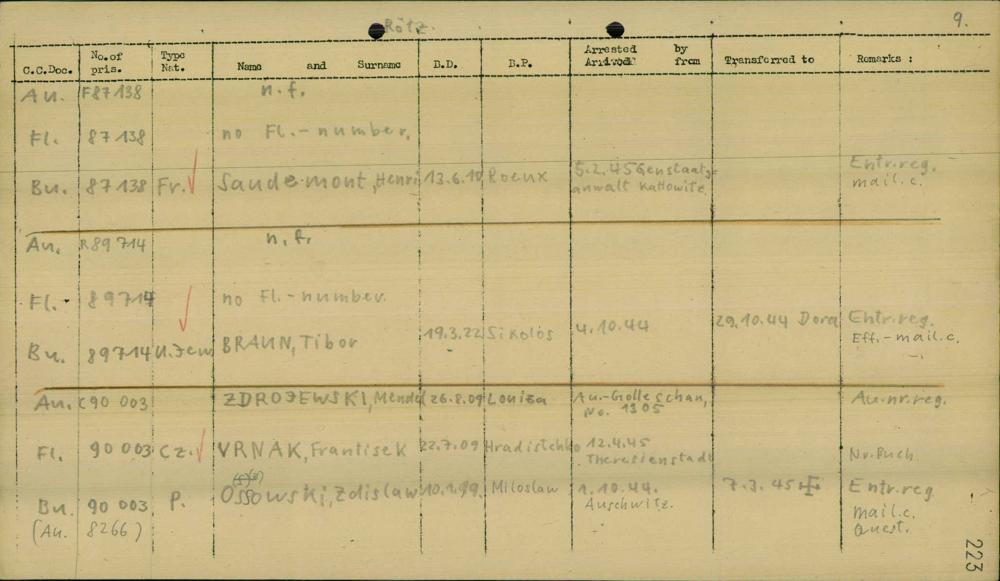 Rötz.
9.
C.C.Doc. No.of pris. Type Nat. Name and Surname B.D. B.P. Arrested by Arrived from Transferred to Remarks :
Au. F87138 n.f.
Fl. 87138 no Fl.-number.
Bu. 87138 Fr. Saudemont, Henri 13.6.10 Roeux 5.2.45 Genstaats- anwalt Kattowitz Entr.reg. mail.c.
Au. R89714 n.f.
Fl. 89714 no Fl.-number.
Bu. 89714 U.Jew BRAUN, Tibor 19.3.22 Sikolós 4.10.44 29.10.44 Dora Entr.reg. Eff.-mail.c.
Au. C90 003 ZDROJEWSKI, Mendel 26.8.09 Louiza Au.-Golleschan, No. 1305 Au.nr.reg.
Fl. 90 003 Cz. VRNAK, Frantisek 22.7.09 Hradistchko 12.4.45 Theresienstadt Nr.Buch
Bu. 90 003 P. Ossowski, Zdislaw 10.1.99. Miloslaw 1.10.44. Auschwitz. 7.3.45 Entr.reg. mail.c. Quest.
(Au. 8266)
223